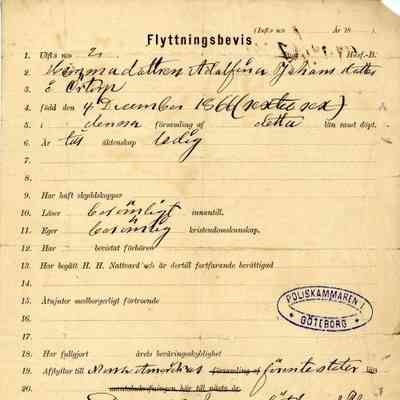 (Infls n:o År 18
Flyttningsbevis.
1. Utfl:s n:o 2. Husf.-B.
2. Hemmadottren Adolfina Johansdotter
3.
4. född den 4 December 1866 (sextio sex)
5. i denna församling af detta län samt döpt.
6. Är till äktenskap ledig
7.
8.
9. Har haft skyddskoppor
10. Läser försvarligt innantill.
11. Eger kristendomskunskap.
12. Har bevistat förhören
13. Har begått H. H. Nattvard och är dertill fortfarande berättigad
14.
15. Åtnjuter medborgerligt förtroende
POLISKAMMAREN I
GÖTEBORG
16.
17.
18. Har fullgjort årets beväringsskyldighet
19. Afflyttar till Norra Amerikas församling af förenta stater län
20. mantalsskrifningen här till nästa år.